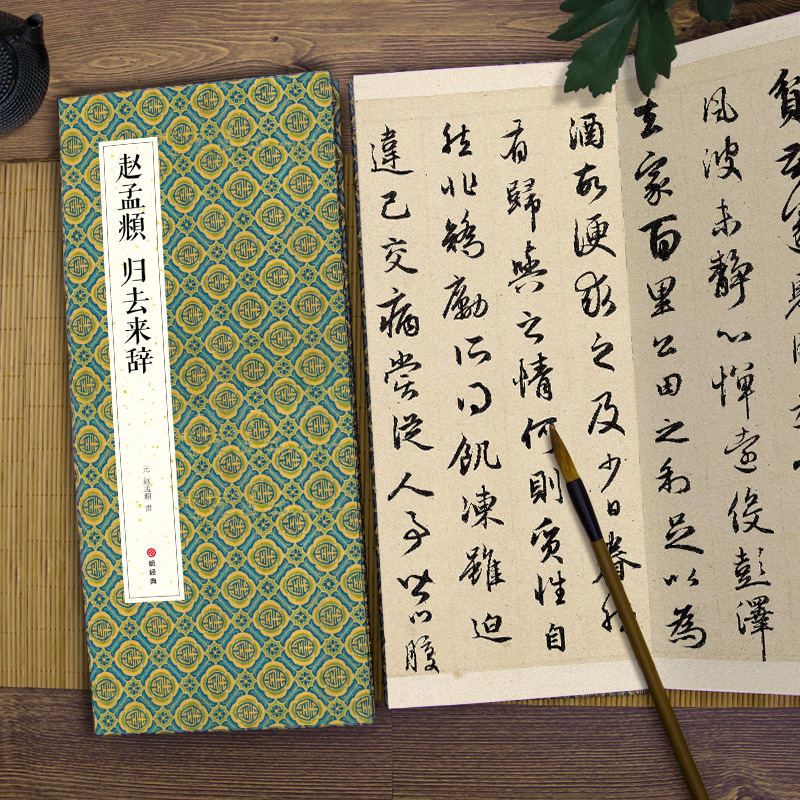 赵孟頫 归去来辞
元 赵孟頫 書
貧苦遂見用
風波未靜心憚遠役彭澤
去家百里公田之利足以為
酒故便求之及少日眷然
有歸與之情何則質性自
然非矯勵所得飢凍雖迫
違己交病嘗從人事皆口腹